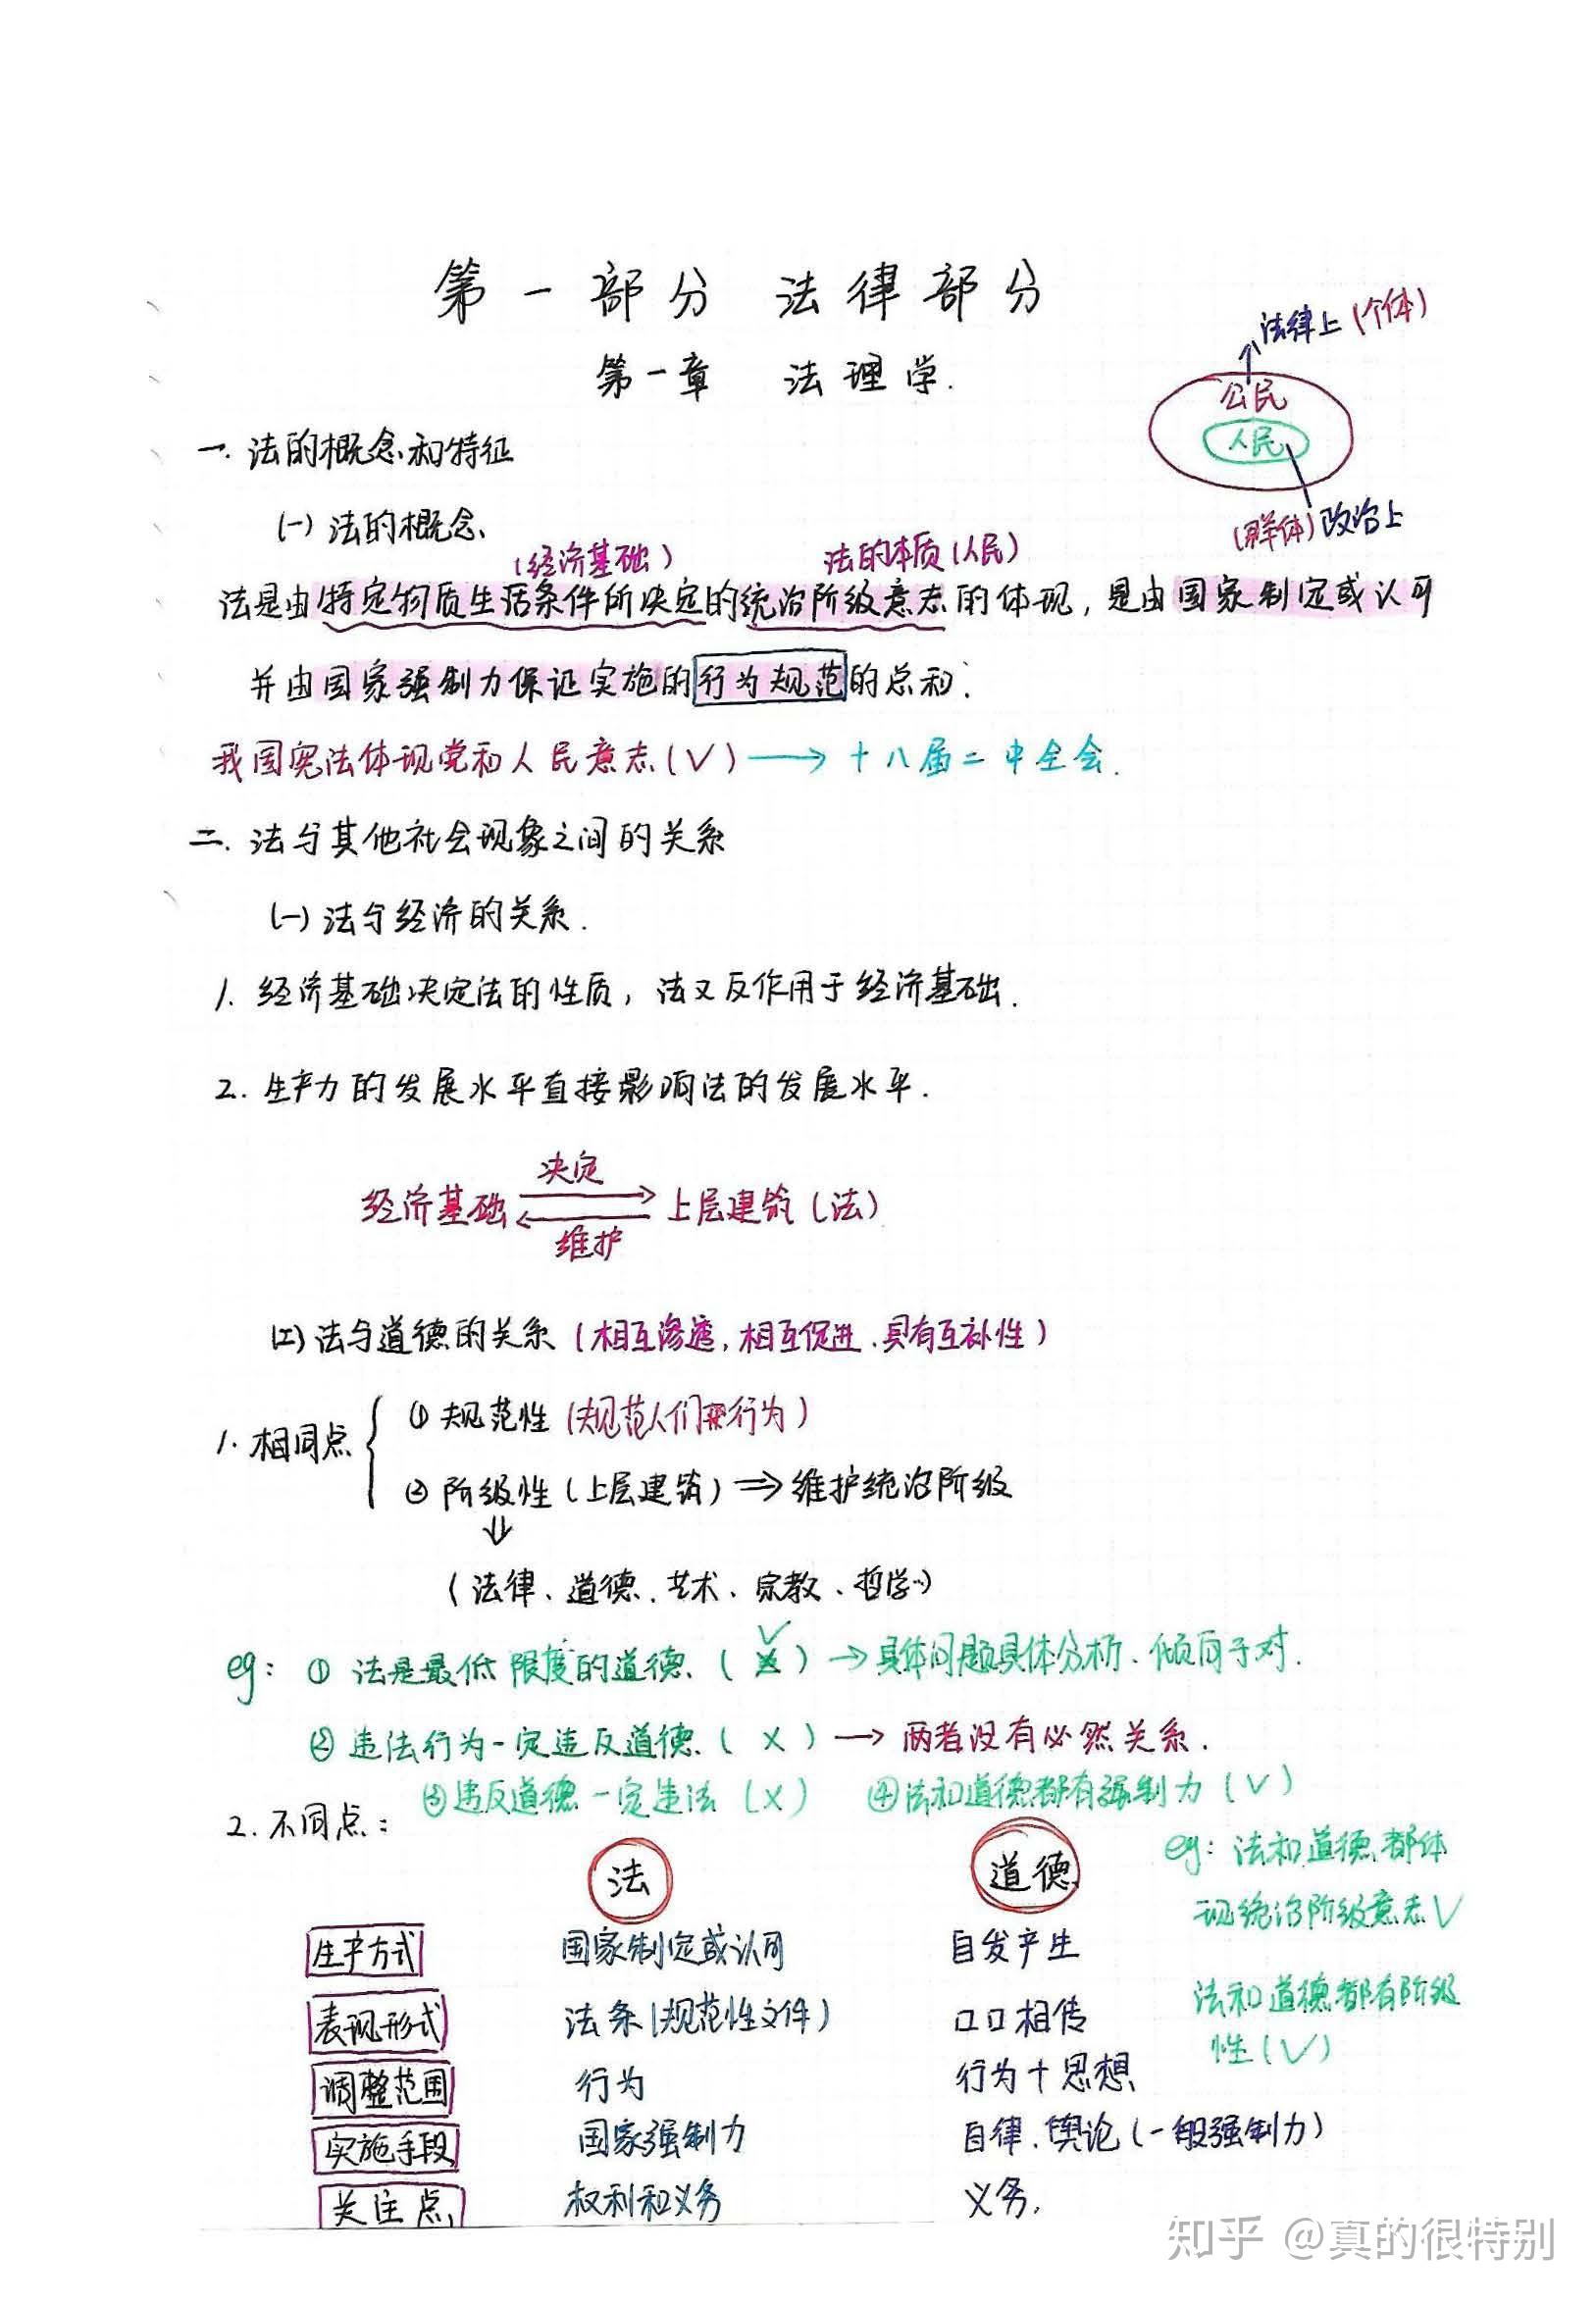 第一部分 法律部分
第一章 法理学.
法律上(个体)
公民
人民
(群体)政治上
一. 法的概念和特征
(一) 法的概念
(经济基础) 法的本质(人民)
法是由特定物质生活条件所决定的统治阶级意志的体现, 是由国家制定或认可
并由国家强制力保证实施的行为规范的总和.
我国宪法体现党和人民意志(√) → 十八届二中全会.
二. 法与其他社会现象之间的关系
(一) 法与经济的关系.
1. 经济基础决定法的性质, 法又反作用于经济基础.
2. 生产力的发展水平直接影响法的发展水平.
决定
经济基础 上层建筑(法)
维护
(二) 法与道德的关系 (相互渗透, 相互促进、具有互补性)
1. 相同点
① 规范性 (规范人们行为)
② 阶级性 (上层建筑) ⇒ 维护统治阶级
⇓
(法律、道德、艺术、宗教、哲学…)
eg: ① 法是最低限度的道德. ( √ ) → 具体问题具体分析、倾向于对.
② 违法行为一定违反道德 ( × ) → 两者没有必然关系.
③ 违反道德一定违法 (×) ④ 法和道德都有强制力 (√)
2. 不同点:
法 道德
eg: 法和道德都体
现统治阶级意志√
法和道德都有阶级
性(√)
生产方式 国家制定或认可 自发产生
表现形式 法条(规范性文件) 口口相传
调整范围 行为 行为+思想
实施手段 国家强制力 自律、舆论(一般强制力)
关注点 权利和义务 义务.
知乎 @真的很特别